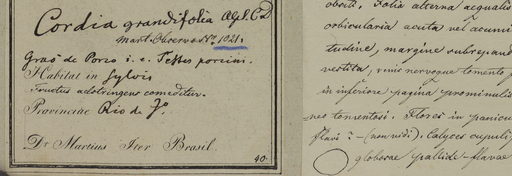 Cordia grandifolia
Mart. Observ. No. 1021.
Grao de Porco i. e. Testes porcini.
Habitat in Sylvis
Fructus adstringens comeditur.
Provinciae Rio de Jo.
Dr Martius Iter Brasil.
40.
obsiti. Folia alterna aequalia
orbicularia acuta vel acumi
tudine, margine subrepand
vestita, venis nervoque tomento
in inferiore pagina prominulis
nes tomentosi. Flores in panicu
flavi? - (non vidi). Calyces cupuli
globosae pallide-flavae